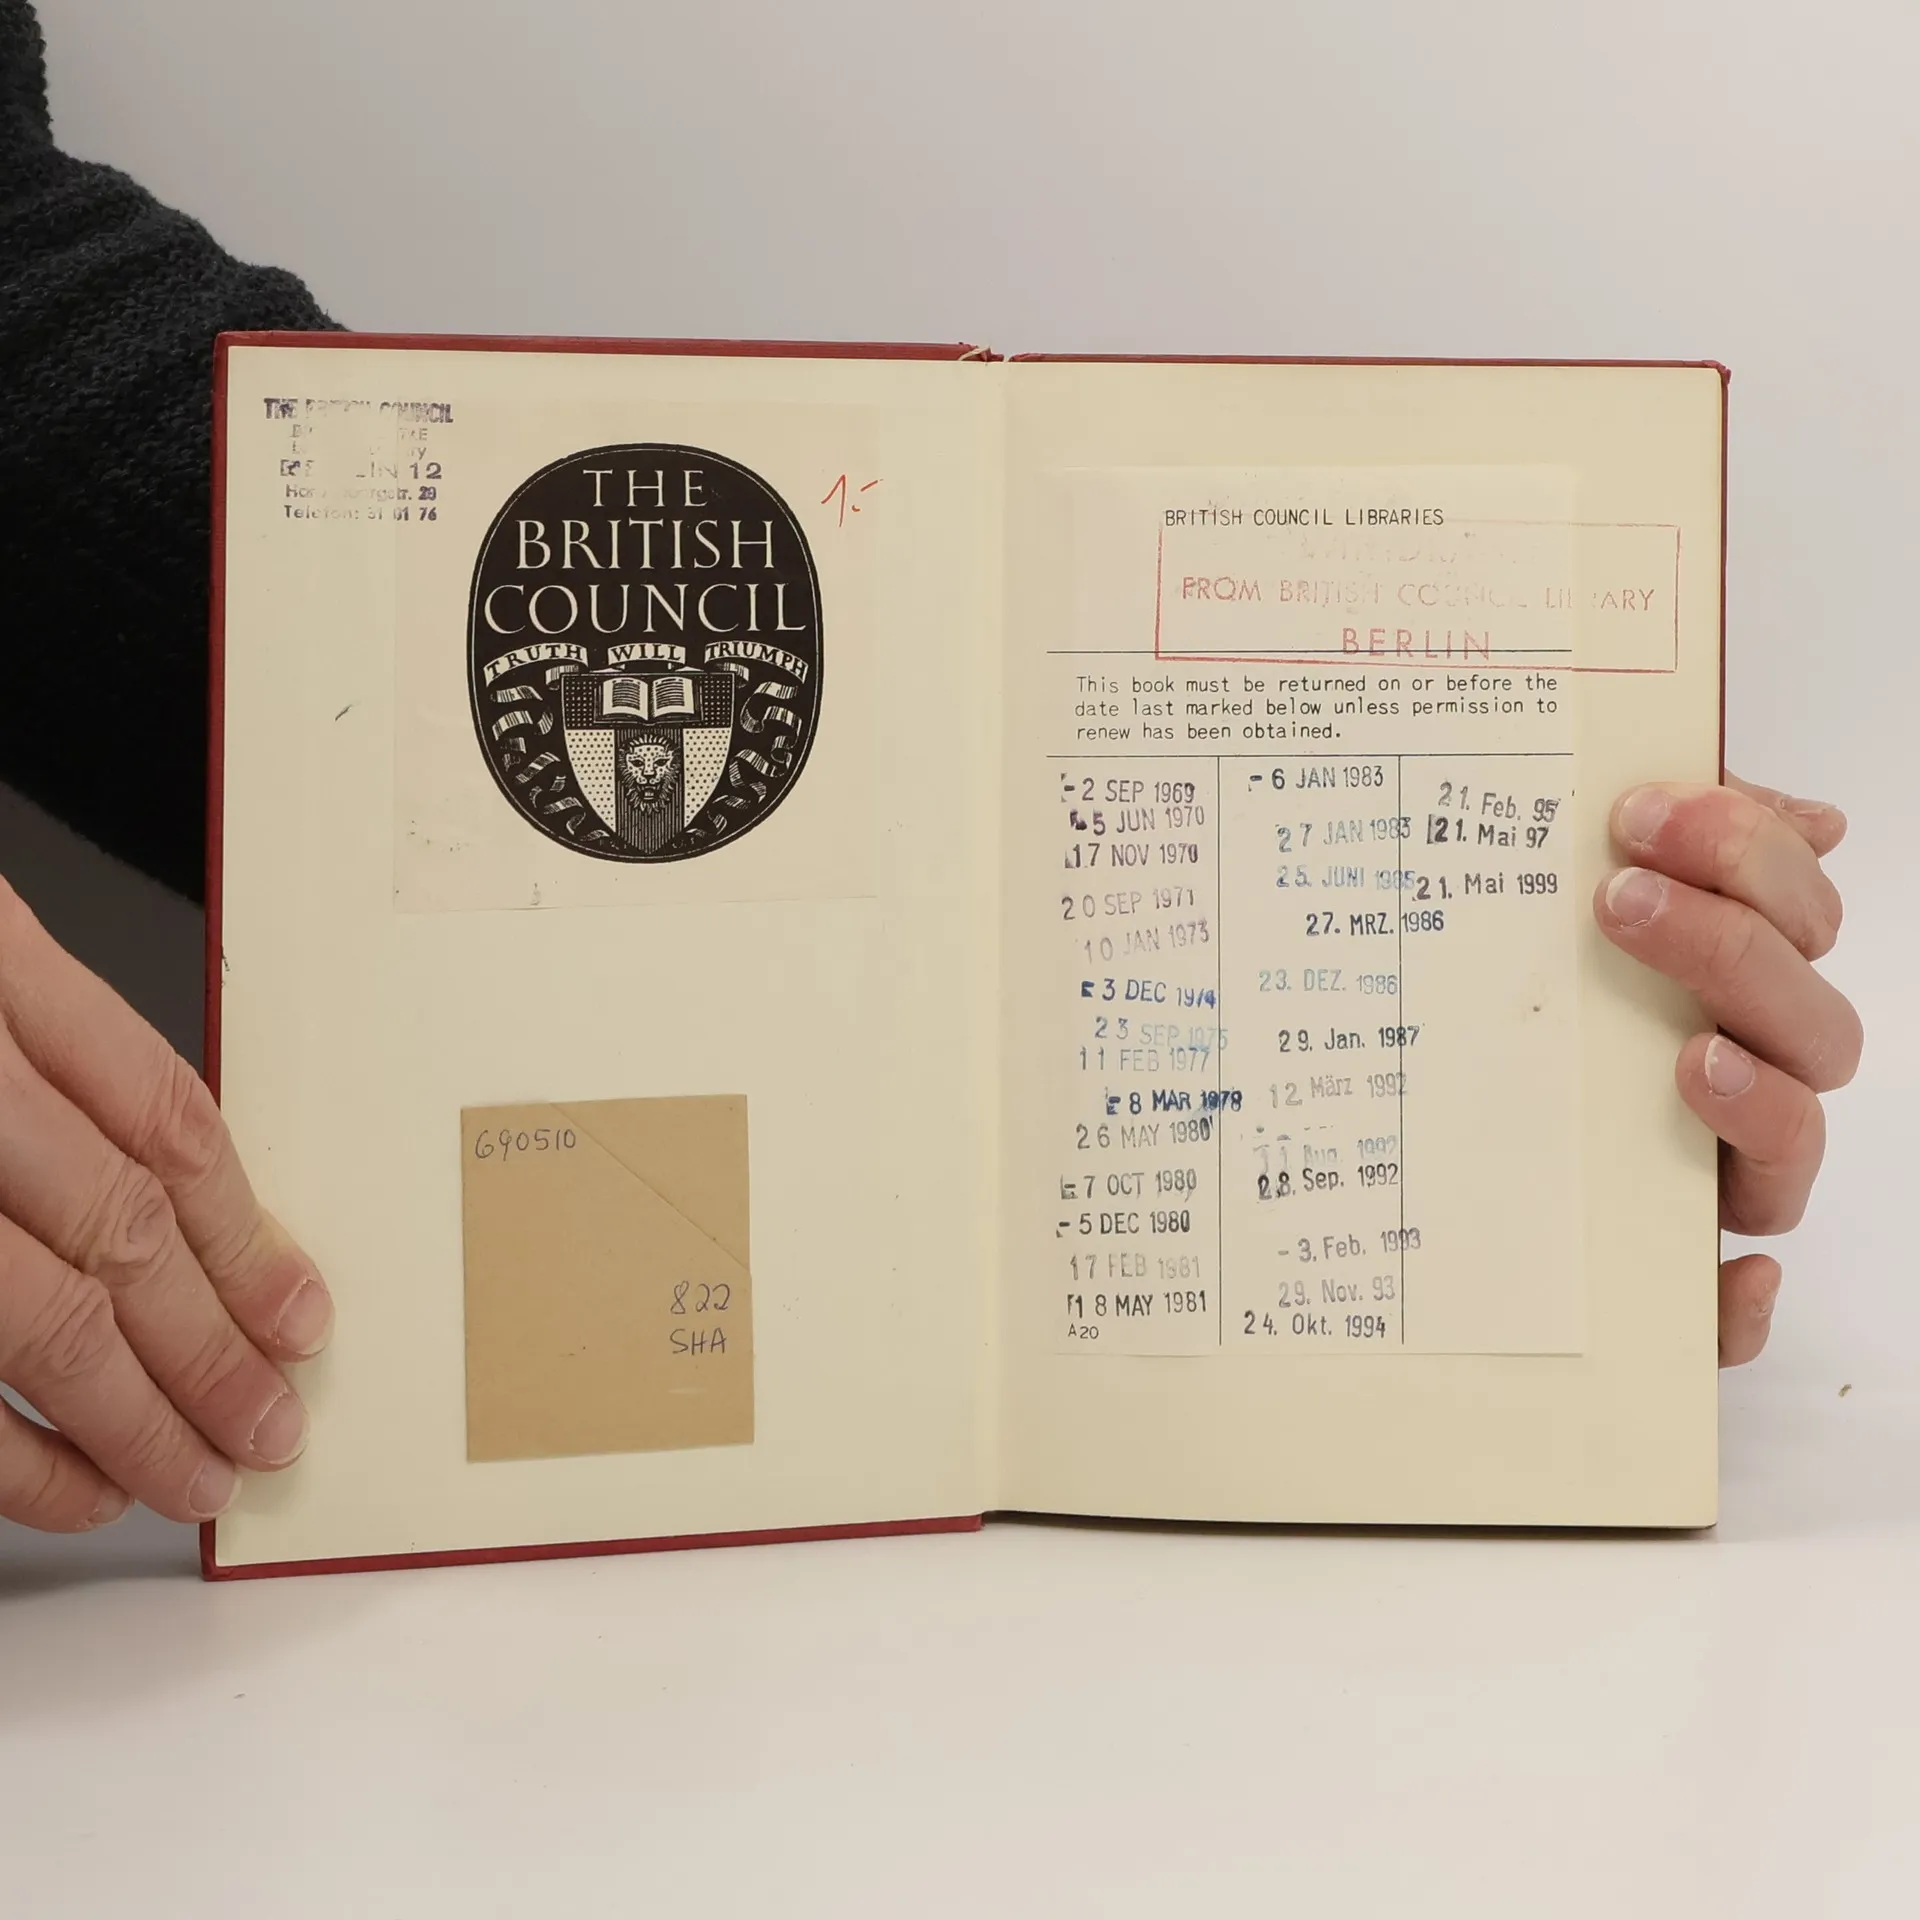 THE BRITISH COUNCIL
LIN 12
Telefon: 31 01 76
THE
BRITISH
COUNCIL
TRUTH WILL TRIUMPH
1.-
690510
822
SHA
BRITISH COUNCIL LIBRARIES
FROM BRITISH COUNCIL LIBRARY
BERLIN
This book must be returned on or before the
date last marked below unless permission to
renew has been obtained.
-2 SEP 1969
5 JUN 1970
17 NOV 1970
20 SEP 1971
10 JAN 1973
3 DEC 1974
23 SEP 1975
11 FEB 1977
8 MAR 1978
26 MAY 1980
-7 OCT 1980
-5 DEC 1980
17 FEB 1981
18 MAY 1981
A20
-6 JAN 1983
27 JAN 1983
25. JUNI 1985
27. MRZ. 1986
23. DEZ. 1986
29. Jan. 1987
12. März 1992
Aug. 1992
28. Sep. 1992
-3. Feb. 1993
29. Nov. 93
24. Okt. 1994
21. Feb. 95
21. Mai 97
21. Mai 1999